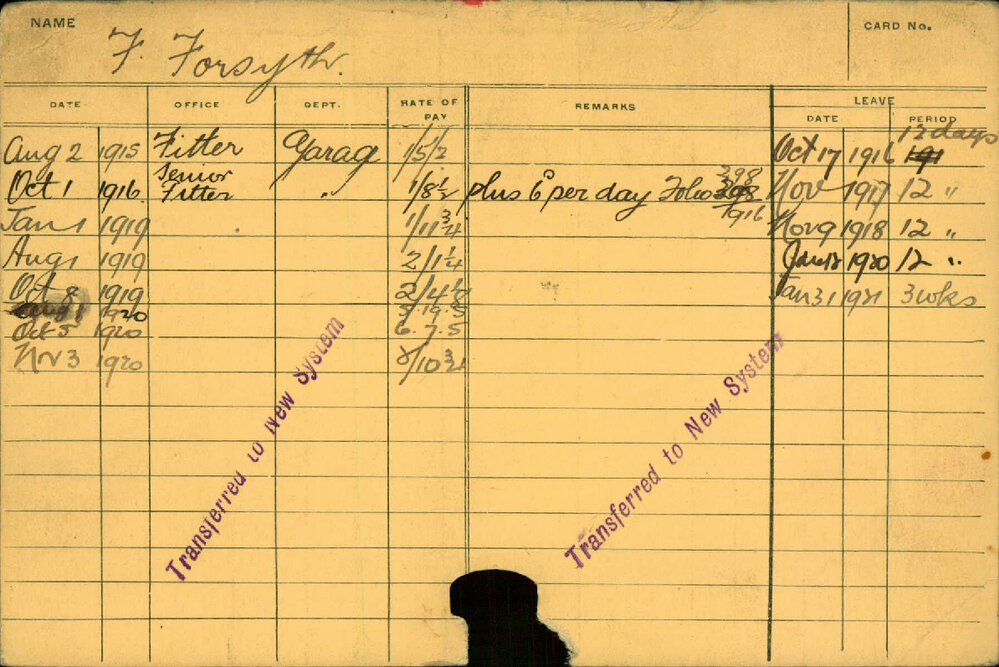 NAME F. Forsyth.
CARD No.
DATE OFFICE DEPT. RATE OF PAY REMARKS LEAVE
DATE PERIOD
12 days
Aug 2 1915 Fitter Garag 1/5/2 Oct 17 1916 191
Oct 1 1916. Senior Fitter " 1/8½ plus 6D per day Folio 398 1916 Nov 1917 12 "
Jan 1 1919 1/11¾ Nov 9 1918 12 "
Aug 1 1919 2/1¼ Jan 12 1920 12 "
Oct 8 1919 2/4 Jan 31 1921 3 wks
Aug 1 1920 5.19.5
Oct 5 1920 6.7.5
Nov 3 1920 /10¾
Transferred to New System
Transferred to New System